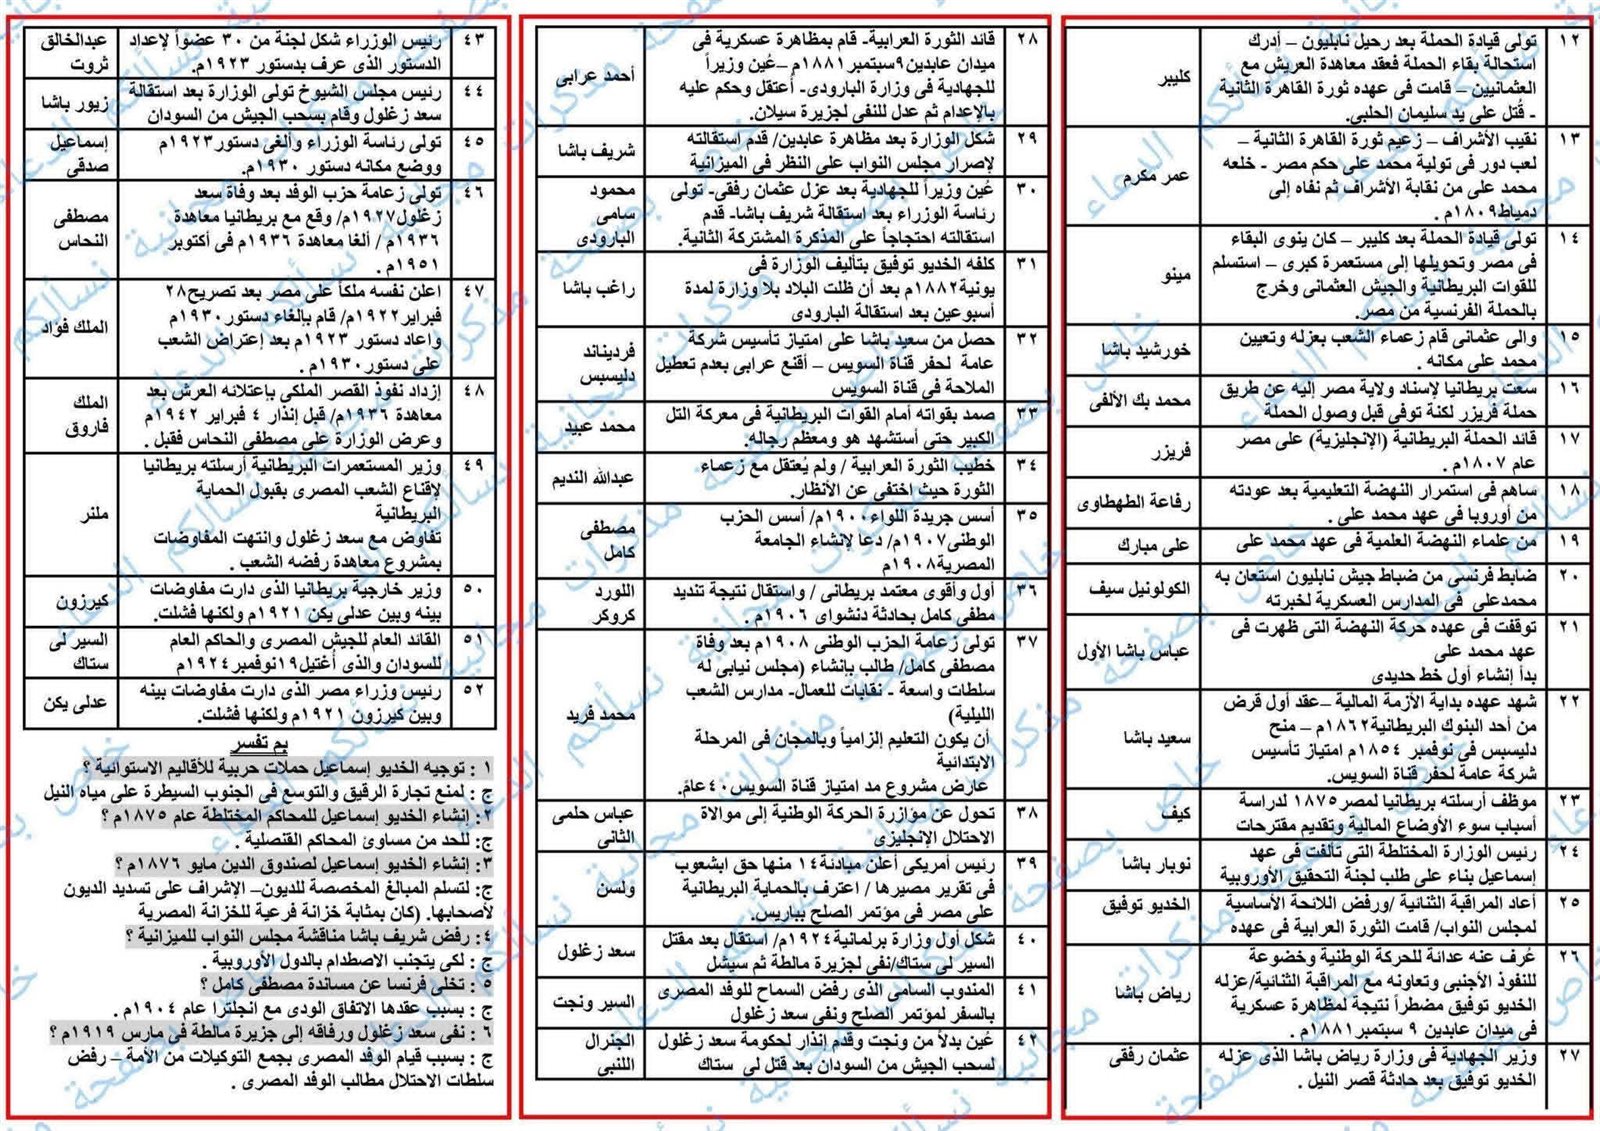 ١٢ تولى قيادة الحملة بعد رحيل نابليون – أدرك
استحالة بقاء الحملة فعقد معاهدة العريش مع
العثمانيين – قامت فى عهده ثورة القاهرة الثانية
- قُتل على يد سليمان الحلبي.
كليبر
١٣ نقيب الأشراف – زعيم ثورة القاهرة الثانية –
لعب دور فى تولية محمد على حكم مصر - خلعه
محمد على من نقابة الأشراف ثم نفاه إلى
دمياط١٨٠٩م .
عمر مكرم
١٤ تولى قيادة الحملة بعد كليبر – كان ينوى البقاء
فى مصر وتحويلها إلى مستعمرة كبرى – استسلم
للقوات البريطانية والجيش العثمانى وخرج
بالحملة الفرنسية من مصر.
مينو
١٥ والى عثمانى قام زعماء الشعب بعزله وتعيين
محمد على مكانه .
خورشيد باشا
١٦ سعت بريطانيا لإسناد ولاية مصر إليه عن طريق
حملة فريزر لكنة توفى قبل وصول الحملة
محمد بك الألفى
١٧ قائد الحملة البريطانية (الإنجليزية) على مصر
عام ١٨٠٧م .
فريزر
١٨ ساهم فى استمرار النهضة التعليمية بعد عودته
من أوروبا فى عهد محمد على .
رفاعة الطهطاوى
١٩ من علماء النهضة العلمية فى عهد محمد على
على مبارك
٢٠ ضابط فرنسى من ضباط جيش نابليون استعان به
محمدعلى فى المدارس العسكرية لخبرته
الكولونيل سيف
٢١ توقفت فى عهده حركة النهضة التى ظهرت فى
عهد محمد على
بدأ إنشاء أول خط حديدى
عباس باشا الأول
٢٢ شهد عهده بداية الأزمة المالية –عقد أول قرض
من أحد البنوك البريطانية١٨٦٢م – منح
دليسبس فى نوفمبر ١٨٥٤م امتياز تأسيس
شركة عامة لحفر قناة السويس.
سعيد باشا
٢٣ موظف أرسلته بريطانيا لمصر١٨٧٥ لدراسة
أسباب سوء الأوضاع المالية وتقديم مقترحات
كيف
٢٤ رئيس الوزارة المختلطة التى تألفت فى عهد
إسماعيل بناء على طلب لجنة التحقيق الأوروبية
نوبار باشا
٢٥ أعاد المراقبة الثنائية /ورفض اللائحة الأساسية
لمجلس النواب/ قامت الثورة العرابية فى عهده
الخديو توفيق
٢٦ عُرف عنه عدائة للحركة الوطنية وخضوعة
للنفوذ الأجنبى وتعاونه مع المراقبة الثنائية/عزله
الخديو توفيق مضطراً نتيجة لمظاهرة عسكرية
فى ميدان عابدين ٩ سبتمبر١٨٨١م .
رياض باشا
٢٧ وزير الجهادية فى وزارة رياض باشا الذى عزله
الخديو توفيق بعد حادثة قصر النيل .
عثمان رفقى
٢٨ قائد الثورة العرابية- قام بمظاهرة عسكرية فى
ميدان عابدين٩سبتمبر١٨٨١م –عُين وزيراً
للجهادية فى وزارة البارودى- أُعتقل وحكم عليه
بالإعدام ثم عدل للنفى لجزيرة سيلان.
أحمد عرابى
٢٩ شكل الوزارة بعد مظاهرة عابدين/ قدم استقالته
لإصرار مجلس النواب على النظر فى الميزانية
شريف باشا
٣٠ عُين وزيراً للجهادية بعد عزل عثمان رفقى- تولى
رئاسة الوزراء بعد استقالة شريف باشا- قدم
استقالته احتجاجاً على المذكرة المشتركة الثانية.
محمود
سامى
البارودى
٣١ كلفه الخديو توفيق بتأليف الوزارة فى
يونية١٨٨٢م بعد أن ظلت البلاد بلا وزارة لمدة
أسبوعين بعد استقالة البارودى
راغب باشا
٣٢ حصل من سعيد باشا على امتياز تأسيس شركة
عامة لحفر قناة السويس – أقنع عرابى بعدم تعطيل
الملاحة فى قناة السويس
فرديناند
دليسبس
٣٣ صمد بقواته أمام القوات البريطانية فى معركة التل
الكبير حتى أستشهد هو ومعظم رجاله.
محمد عبيد
٣٤ خطيب الثورة العرابية / ولم يُعتقل مع زعماء
الثورة حيث اختفى عن الأنظار.
عبدالله النديم
٣٥ أسس جريدة اللواء١٩٠٠م/ أسس الحزب
الوطنى١٩٠٧م/ دعا لإنشاء الجامعة
المصرية١٩٠٨م
مصطفى
كامل
٣٦ أول وأقوى معتمد بريطانى / واستقال نتيجة تنديد
مطفى كامل بحادثة دنشواى ١٩٠٦م .
اللورد
كروكر
٣٧ تولى زعامة الحزب الوطنى ١٩٠٨م بعد وفاة
مصطفى كامل/ طالب بإنشاء (مجلس نيابى له
سلطات واسعة - نقابات للعمال- مدارس الشعب
الليلية)
أن يكون التعليم إلزامياً وبالمجان فى المرحلة
الابتدائية
عارض مشروع مد امتياز قناة السويس٤٠عاماً.
محمد فريد
٣٨ تحول عن مؤازرة الحركة الوطنية إلى موالاة
الاحتلال الإنجليزى
عباس حلمى
الثانى
٣٩ رئيس أمريكى أعلن مبادئة١٤ منها حق ابشعوب
فى تقرير مصيرها / اعترف بالحماية البريطانية
على مصر فى مؤتمر الصلح بباريس.
ولسن
٤٠ شكل أول وزارة برلمانية١٩٢٤م/ استقال بعد مقتل
السير لى ستاك/نفى لجزيرة مالطة ثم سيشل
سعد زغلول
٤١ المندوب السامى الذى رفض السماح للوفد المصرى
بالسفر لمؤتمر الصلح ونفى سعد زغلول
السير ونجت
٤٢ عُين بدلاً من ونجت وقدم إنذار لحكومة سعد زغلول
لسحب الجيش من السودان بعد قتل لى ستاك
الجنرال
اللنبى
٤٣ رئيس الوزراء شكل لجنة من ٣٠ عضواً لإعداد
الدستور الذى عرف بدستور ١٩٢٣م.
عبدالخالق
ثروت
٤٤ رئيس مجلس الشيوخ تولى الوزارة بعد استقالة
سعد زغلول وقام بسحب الجيش من السودان
زيور باشا
٤٥ تولى رئاسة الوزراء وألغى دستور١٩٢٣م
ووضع مكانه دستور ١٩٣٠م.
إسماعيل
صدقى
٤٦ تولى زعامة حزب الوفد بعد وفاة سعد
زغلول١٩٢٧م/ وقع مع بريطانيا معاهدة
١٩٣٦م / ألغا معاهدة ١٩٣٦م فى أكتوبر
١٩٥١م .
مصطفى
النحاس
٤٧ اعلن نفسه ملكاً على مصر بعد تصريح٢٨
فبراير١٩٢٢م/ قام بإلغاء دستور١٩٣٠م
واعاد دستور ١٩٢٣م بعد إعتراض الشعب
على دستور١٩٣٠م.
الملك فؤاد
٤٨ إزداد نفوذ القصر الملكى بإعتلائه العرش بعد
معاهدة ١٩٣٦م/ قبل إنذار ٤ فبراير ١٩٤٢م
وعرض الوزارة على مصطفى النحاس فقبل .
الملك
فاروق
٤٩ وزير المستعمرات البريطانية أرسلته بريطانيا
لإقناع الشعب المصرى بقبول الحماية
البريطانية
تفاوض مع سعد زغلول وانتهت المفاوضات
بمشروع معاهدة رفضه الشعب .
ملنر
٥٠ وزير خارجية بريطانيا الذى دارت مفاوضات
بينه وبين عدلى يكن ١٩٢١م ولكنها فشلت.
كيرزون
٥١ القائد العام للجيش المصرى والحاكم العام
للسودان والذى أُغتيل١٩نوفمبر١٩٢٤م
السير لى
ستاك
٥٢ رئيس وزراء مصر الذى دارت مفاوضات بينه
وبين كيرزون ١٩٢١م ولكنها فشلت.
عدلى يكن
بم تفسر
١ : توجيه الخديو إسماعيل حملات حربية للأقاليم الاستوائية ؟
ج : لمنع تجارة الرقيق والتوسع فى الجنوب السيطرة على مياه النيل
٢: إنشاء الخديو إسماعيل للمحاكم المختلطة عام ١٨٧٥م ؟
ج: للحد من مساوئ المحاكم القنصلية .
٣: إنشاء الخديو إسماعيل لصندوق الدين مايو ١٨٧٦م ؟
ج: لتسلم المبالغ المخصصة للديون– الإشراف على تسديد الديون
لأصحابها. (كان بمثابة خزانة فرعية للخزانة المصرية
٤: رفض شريف باشا مناقشة مجلس النواب للميزانية ؟
ج : لكى يتجنب الاصطدام بالدول الأوروبية .
٥ : تخلى فرنسا عن مساندة مصطفى كامل ؟
ج : بسبب عقدها الاتفاق الودى مع انجلترا عام ١٩٠٤م .
٦ : نفى سعد زغلول ورفاقه إلى جزيرة مالطة فى مارس ١٩١٩م ؟
ج : بسبب قيام الوفد المصرى بجمع التوكيلات من الأمة – رفض
سلطات الاحتلال مطالب الوفد المصرى .